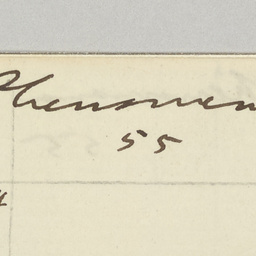 Phenomen
55